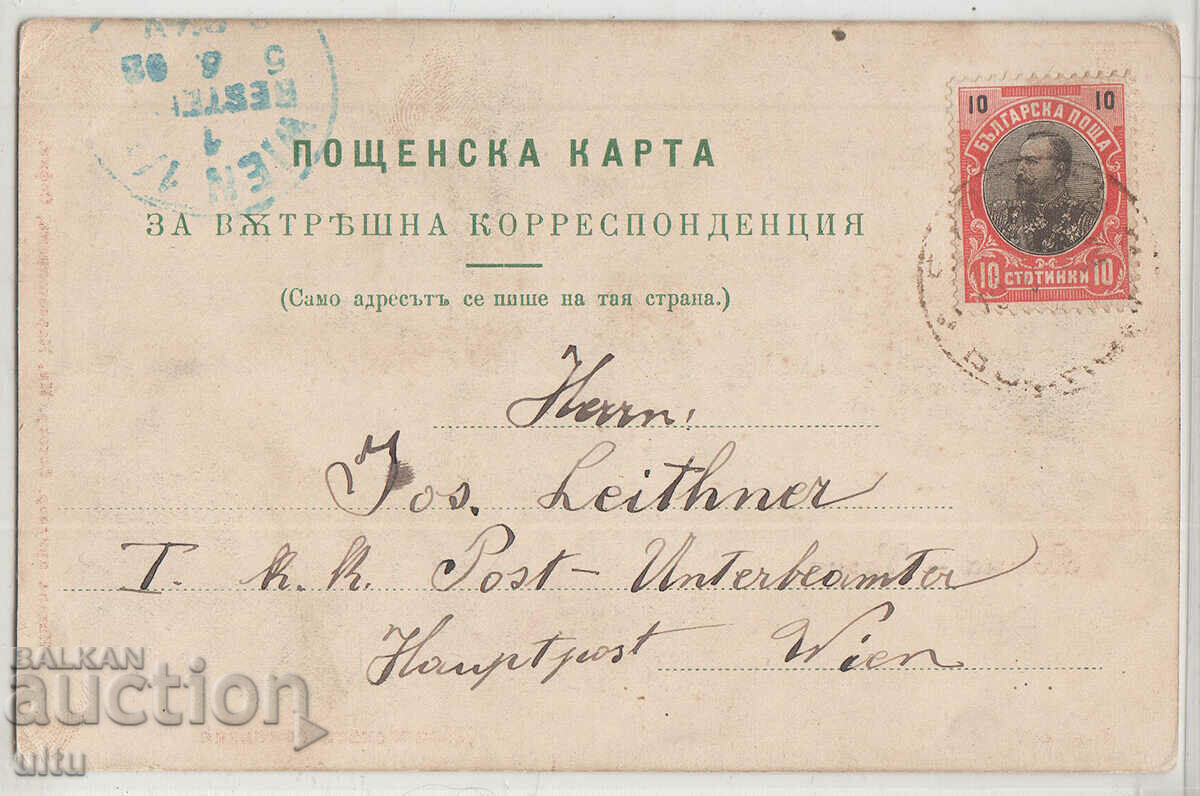 ПОЩЕНСКА КАРТА
ЗА ВѪТРѢШНА КОРРЕСПОНДЕНЦИЯ
(Само адресътъ се пише на тая страна.)
10 10
БЪЛГАРСКА ПОЩА
10 СТОТИНКИ 10
WIEN 1
1
BESTE
5 8 02
Herrn:
Jos. Leithner
I. k. k. Post-Unterbeamter
Hauptpost Wien
BALKAN
auction
ultu